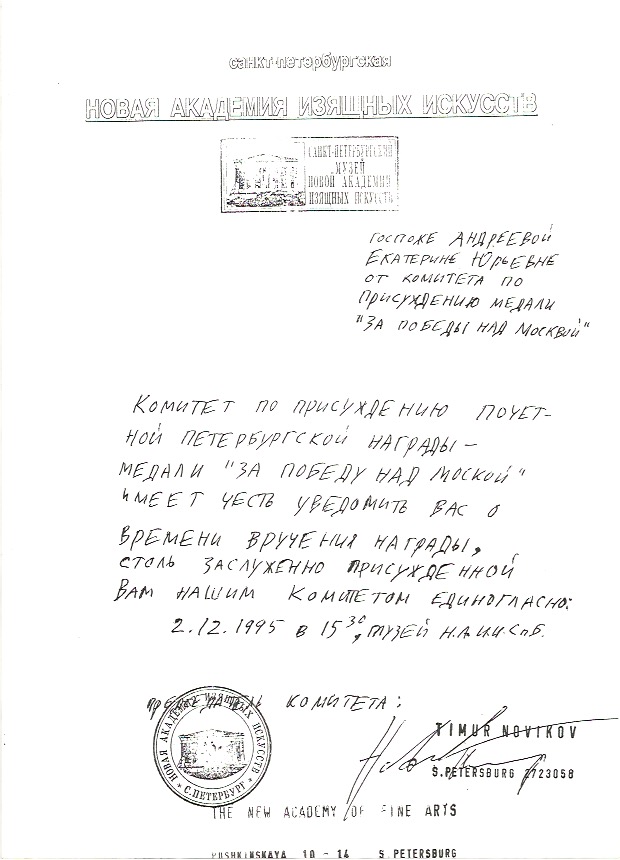 санкт-петербургская
НОВАЯ АКАДЕМИЯ ИЗЯЩНЫХ ИСКУССТВ
САНКТ-ПЕТЕРБУРГСКИЙ
МУЗЕЙ
НОВОЙ АКАДЕМИИ
ИЗЯЩНЫХ ИСКУССТВ
ГОСПОЖЕ АНДРЕЕВОЙ
ЕКАТЕРИНЕ ЮРЬЕВНЕ
ОТ КОМИТЕТА ПО
ПРИСУЖДЕНИЮ МЕДАЛИ
"ЗА ПОБЕДЫ НАД МОСКВОЙ"
КОМИТЕТ ПО ПРИСУЖДЕНИЮ ПОЧЕТ-
НОЙ ПЕТЕРБУРГСКОЙ НАГРАДЫ –
МЕДАЛИ "ЗА ПОБЕДУ НАД МОСКОЙ"
ИМЕЕТ ЧЕСТЬ УВЕДОМИТЬ ВАС О
ВРЕМЕНИ ВРУЧЕНИЯ НАГРАДЫ,
СТОЛЬ ЗАСЛУЖЕННО ПРИСУЖДЕННОЙ
ВАМ НАШИМ КОМИТЕТОМ ЕДИНОГЛАСНО:
2.12.1995 в 15 30, МУЗЕЙ Н.А.И.И. СПб.
ПРЕДСЕДАТЕЛЬ КОМИТЕТА:
НОВАЯ АКАДЕМИЯ ИЗЯЩНЫХ ИСКУССТВ
* С.ПЕТЕРБУРГ *
TIMUR NOVIKOV
S.PETERSBURG 2723058
THE NEW ACADEMY OF FINE ARTS
PUSHKINSKAYA 10 - 14 S.PETERSBURG